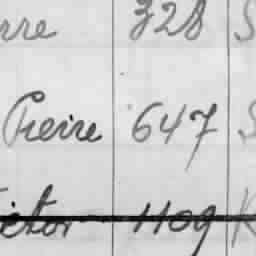 rre 328 S
Pierre 647 S
ictor 1109 R